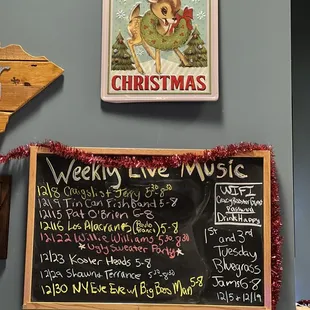 CHRISTMAS
Weekly Live Music
12/8 Craigslist Jerry 5:30-8:30
12/9 Tin Can Fish Band 5-8
12/15 Pat O'Brien 6-8
12/16 Los Alacranes 5-8
12/22 Willie Williams 5:30-8:30
*Ugly Sweater Party*
12/23 Kooler Heads 5-8
12/29 Shawn & Terrance 5:30-8:30
12/30 NYE Eve w/ Big Boss Man 5-8
WIFI
Password
Drink Happy
1st and 3rd
Tuesday
Bluegrass
Jams 6-8
12/5 + 12/19